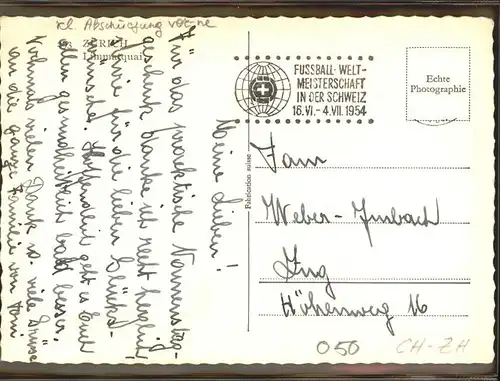 kl. Abschürfung vorne
ZÜRICH
Limmatquai
Meine Lieben!
Für das praktische Namenstag-
geschenk danke ich recht herzlich
sowie für die lieben Glücks-
wünsche. Hoffentlich geht es Euch
allen gesundheitlich bald besser.
Nochmals vielen Dank u. viele Grüsse
an die ganze Familie von
FUSSBALL-WELT-
MEISTERSCHAFT
IN DER SCHWEIZ
16.VI.-4.VII.1954
Echte
Photographie
Fabrication suisse
Fam
Weber-Imbach
Zug
Höhenweg 16
050
CH-ZH